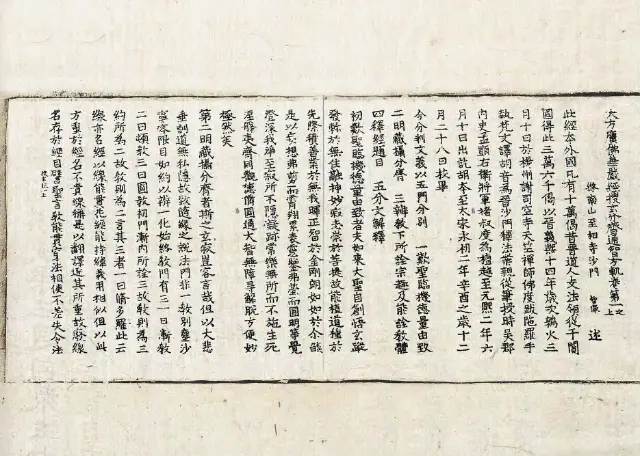 大方廣佛無嚴經搜玄分齊通智方軌卷第一之上
終南山至相寺沙門 智儼 述
此經本外國凡有十萬偈昔晉道人支法領從于闐
國得此三萬六千偈以晉義熙十四年歲次鶉火三
月十日於揚州謝司空寺天竺禪師佛度跋陀羅手
執梵文譯胡音為晉沙門釋法業親從筆授時吳郡
內史孟顗右衛將軍褚叔度為檀越至元熙二年六
月十日出訖胡本至太宗永初二年辛丑之歲十二
月二十八日挍畢
今分判文義以五門分別 一歎聖臨機德量由致
二明藏攝分齊 三辨教下所詮宗趣及能詮教體
四釋經題目 五分文解釋
初歎聖臨機德量由致者夫如來大聖自創悟玄蹤
發軫於無住融神妙寂志崇於菩提故能殖道種於
先際積善業於無我暉正智於金剛朗如如於介餘
是以妄想弗剪而霄翔業累靡鑒弗瑩而圓明等覺
澄深我淨至寂所不隱凝跡常樂無所而不施生死
涅槃夷齊同觀德備圓通大智無障辛解脫方便妙
極然矣
第二明藏攝分齊者斯之玄寂豈容言哉但以大悲
垂訓道無私隱故致隨緣之說法門非一教別塵沙
寧容限目如約以辨一化始終教門有三一曰漸教
二曰頓教三曰圓教初門漸內所詮三故教則為三
約所為二故教別為二言其三者一曰脩多羅此云
綖亦名經以綖能貫花經能持緯義用相似但以此
方重於經名不貴綖稱是以翻譯逐其所重故廢綖
名存於經目譬聖言教能貫穿法相使不差失令法